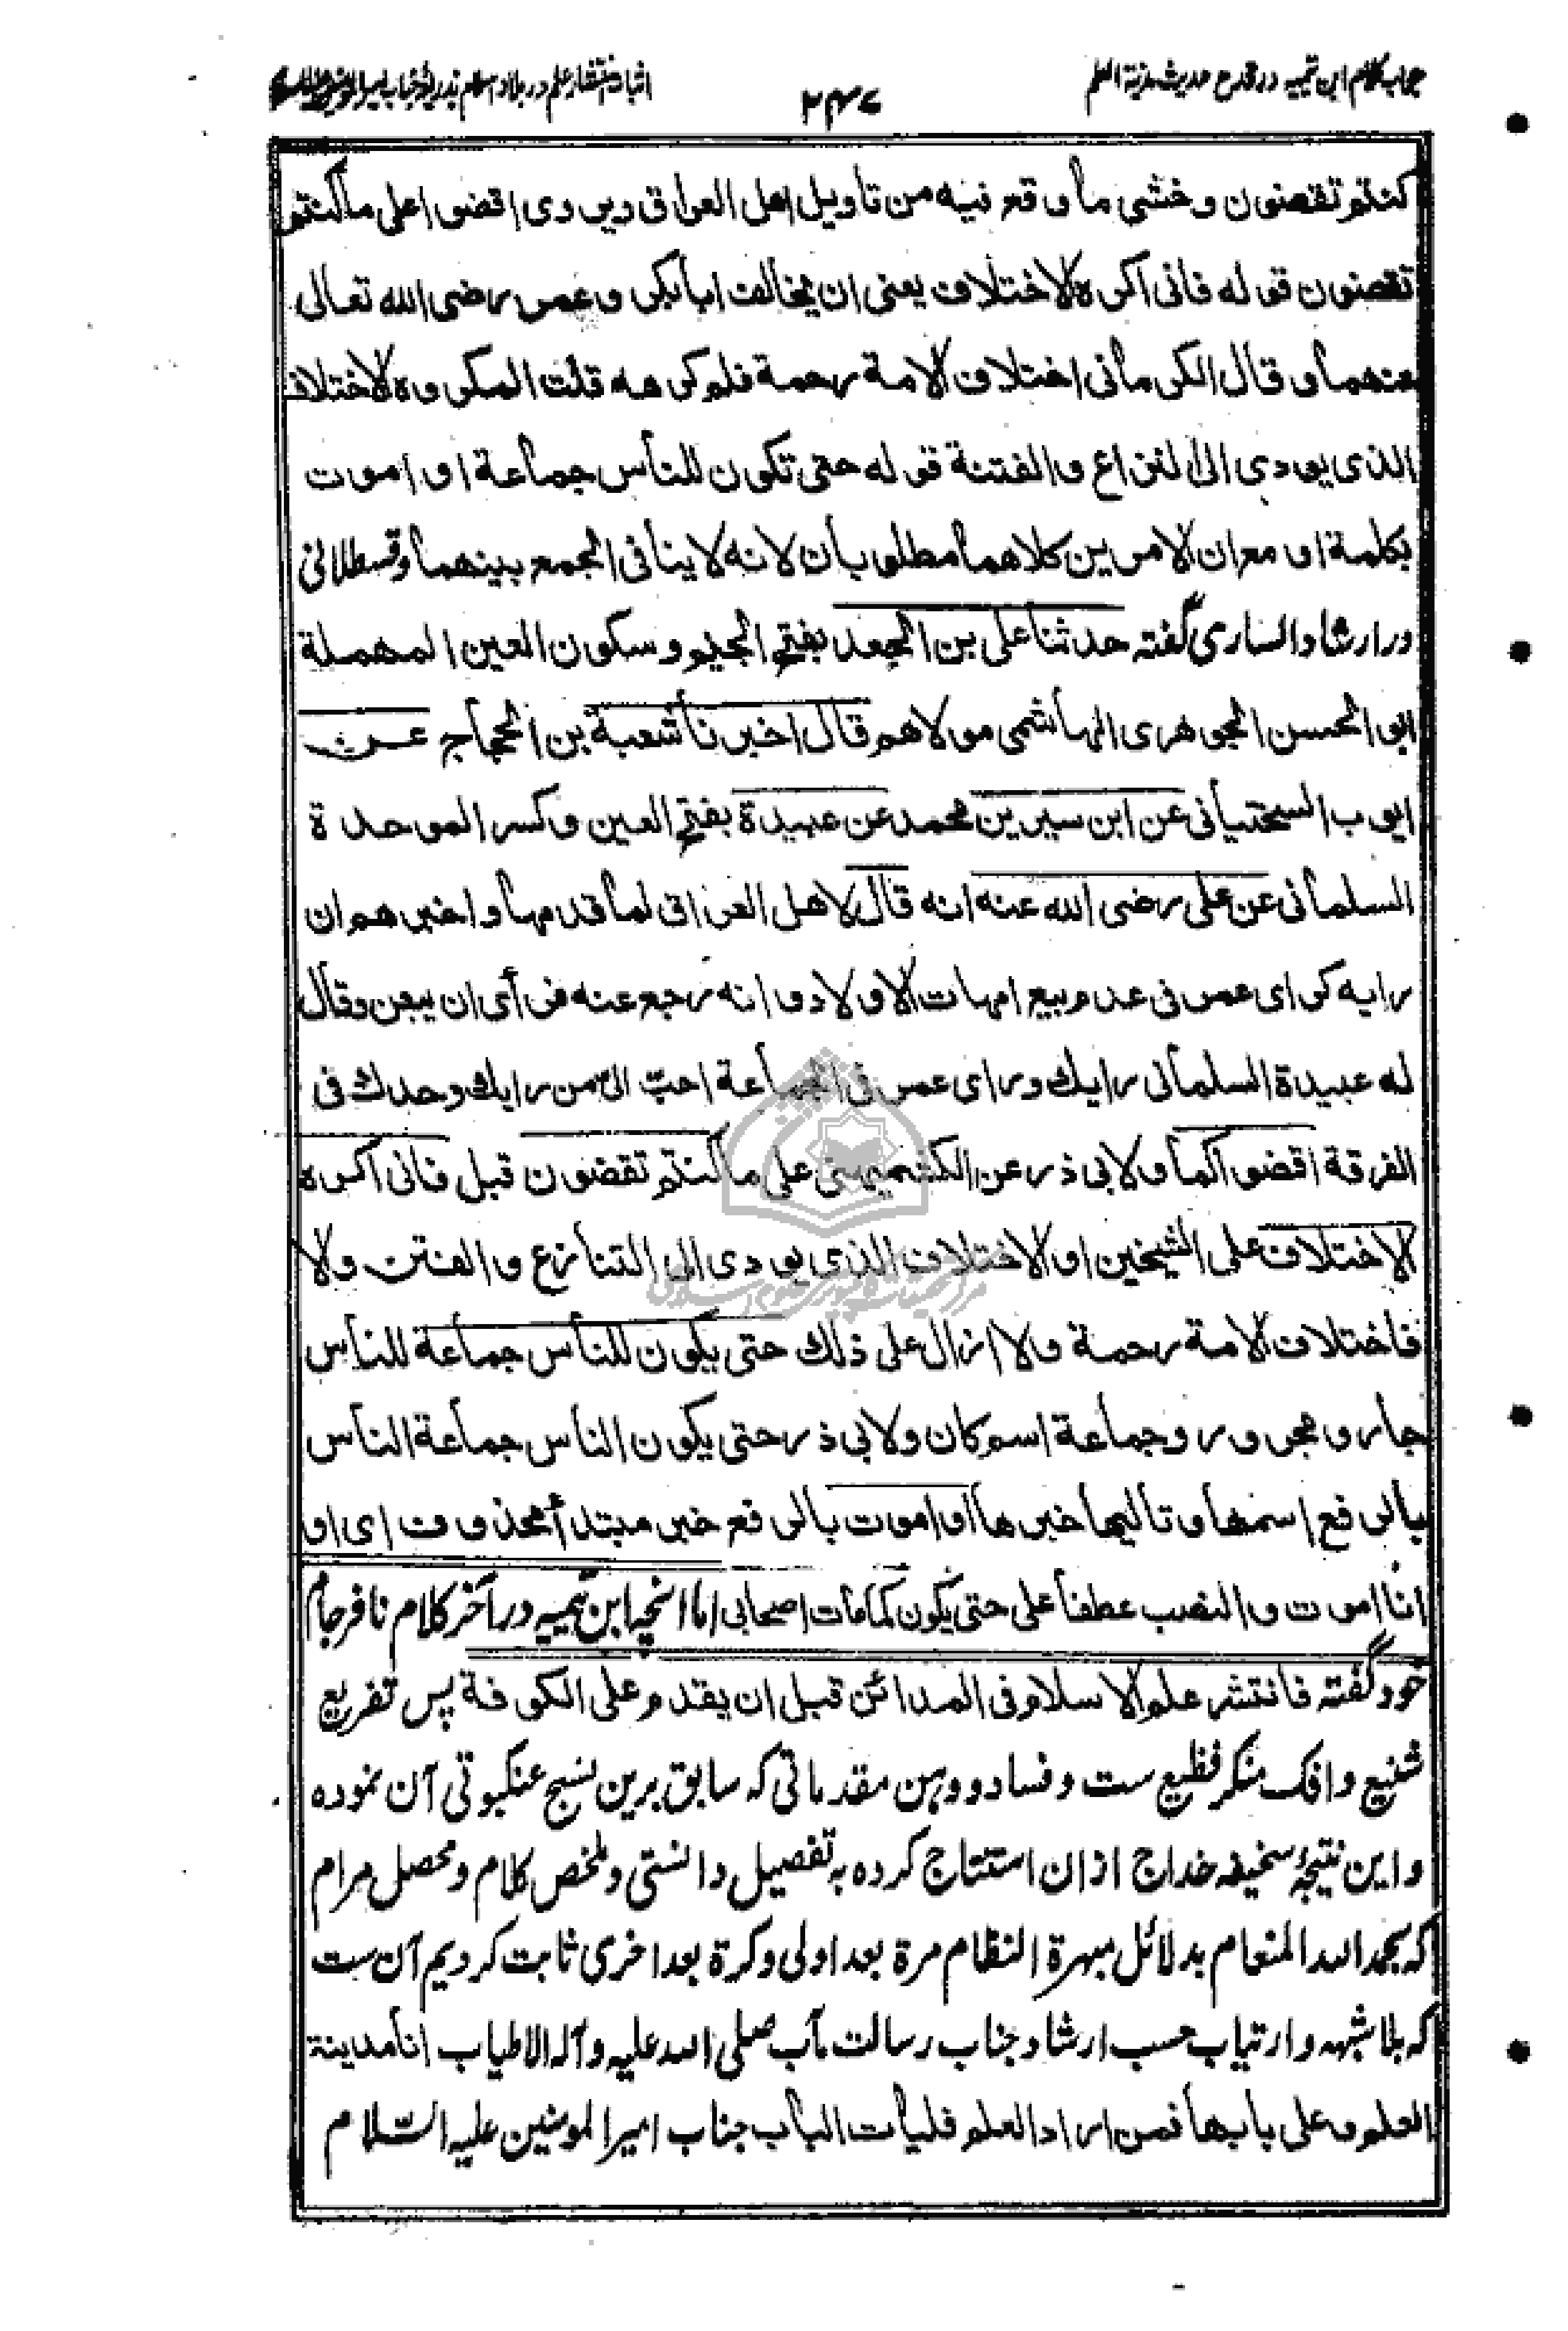 جواب کلام ابن تیمیہ در قدح حدیث مدینة العلم
۲۴۷
اثبات انتشار علم در بلاد اسلام بذریعۂ جناب امیر المومنین علیہ السلام
كنتم تقضون وخشي ما وقع فيه من تاويل اهل العراق ويروى اقضوا على ما كنتم
تقضون قوله فانى اكره الاختلاف يعنى ان يخالف ابا بكر وعمر رضى الله تعالى
عنهما وقال الكرمانى اختلاف الامة رحمة فلم كرهه قلت المكروه الاختلاف
الذى يودى الى النزاع والفتنة قوله حتى تكون للناس جماعة او اموت
بكلمة او مع ان الامرين كلاهما مطلوبان لانه لا ينافى الجمع بينهما وقسطلانى
در ارشاد السارى گفته حدثنا على بن الجعد بفتح الجيم وسكون العين المهملة
ابو الحسن الجوهرى الهاشمى مولاهم قال اخبرنا شعبة بن الحجاج عن
ايوب السختيانى عن ابن سيرين محمد عن عبيدة بفتح العين وكسر الموحدة
السلمانى عن على رضى الله عنه انه قال لاهل العراق لما قدمها واخبرهم ان
رايه كراى عمر فى عدم بيع امهات الاولاد وانه رجع عنه فرأى ان يبعن وقال
له عبيدة السلمانى رايك وراى عمر فى الجماعة احبّ الىّ من رايك وحدك فى
الفرقة اقضوا كما ولابى ذر عن الكشميهنى على ما كنتم تقضون قبل فانى اكره
الاختلاف على الشيخين او الاختلاف الذى يودى الى التنازع والفتن ولا
فاختلاف الامة رحمة ولا ازال على ذلك حتى يكون للناس جماعة للناس
جار ومجرور وجماعة اسم كان ولابى ذر حتى يكون الناس جماعة الناس
بالرفع اسمها وتاليها خبرها او اموت بالرفع خبر مبتدأ محذوف اى او
انا اموت والنصب عطفا على حتى يكون كما مات اصحابى اما انچه ابن تيميه در آخر كلام نافرجام
خود گفته فانتشر علم الاسلام فى المدائن قبل ان يقدم على الكوفة پس تفريع
شنيع وافك منكر فظيع ست وفساد ووهن مقدماتى كه سابق برين نسج عنكبوتى آن نموده
واين نتيجۂ سخيفه خداج ازان استنتاج كرده به تفصيل دانستى وملخص كلام ومحصل مرام
كه بحمد الله المنعام بدلائل مبهرة النظام مرة بعد اولى وكرة بعد اخرى ثابت كرديم آن ست
كه بلا شبهه وارتياب حسب ارشاد جناب رسالت مآب صلى الله عليه وآله الاطياب انا مدينة
العلم وعلى بابها فمن اراد العلم فليأت الباب جناب امير المومنين عليه السّلام